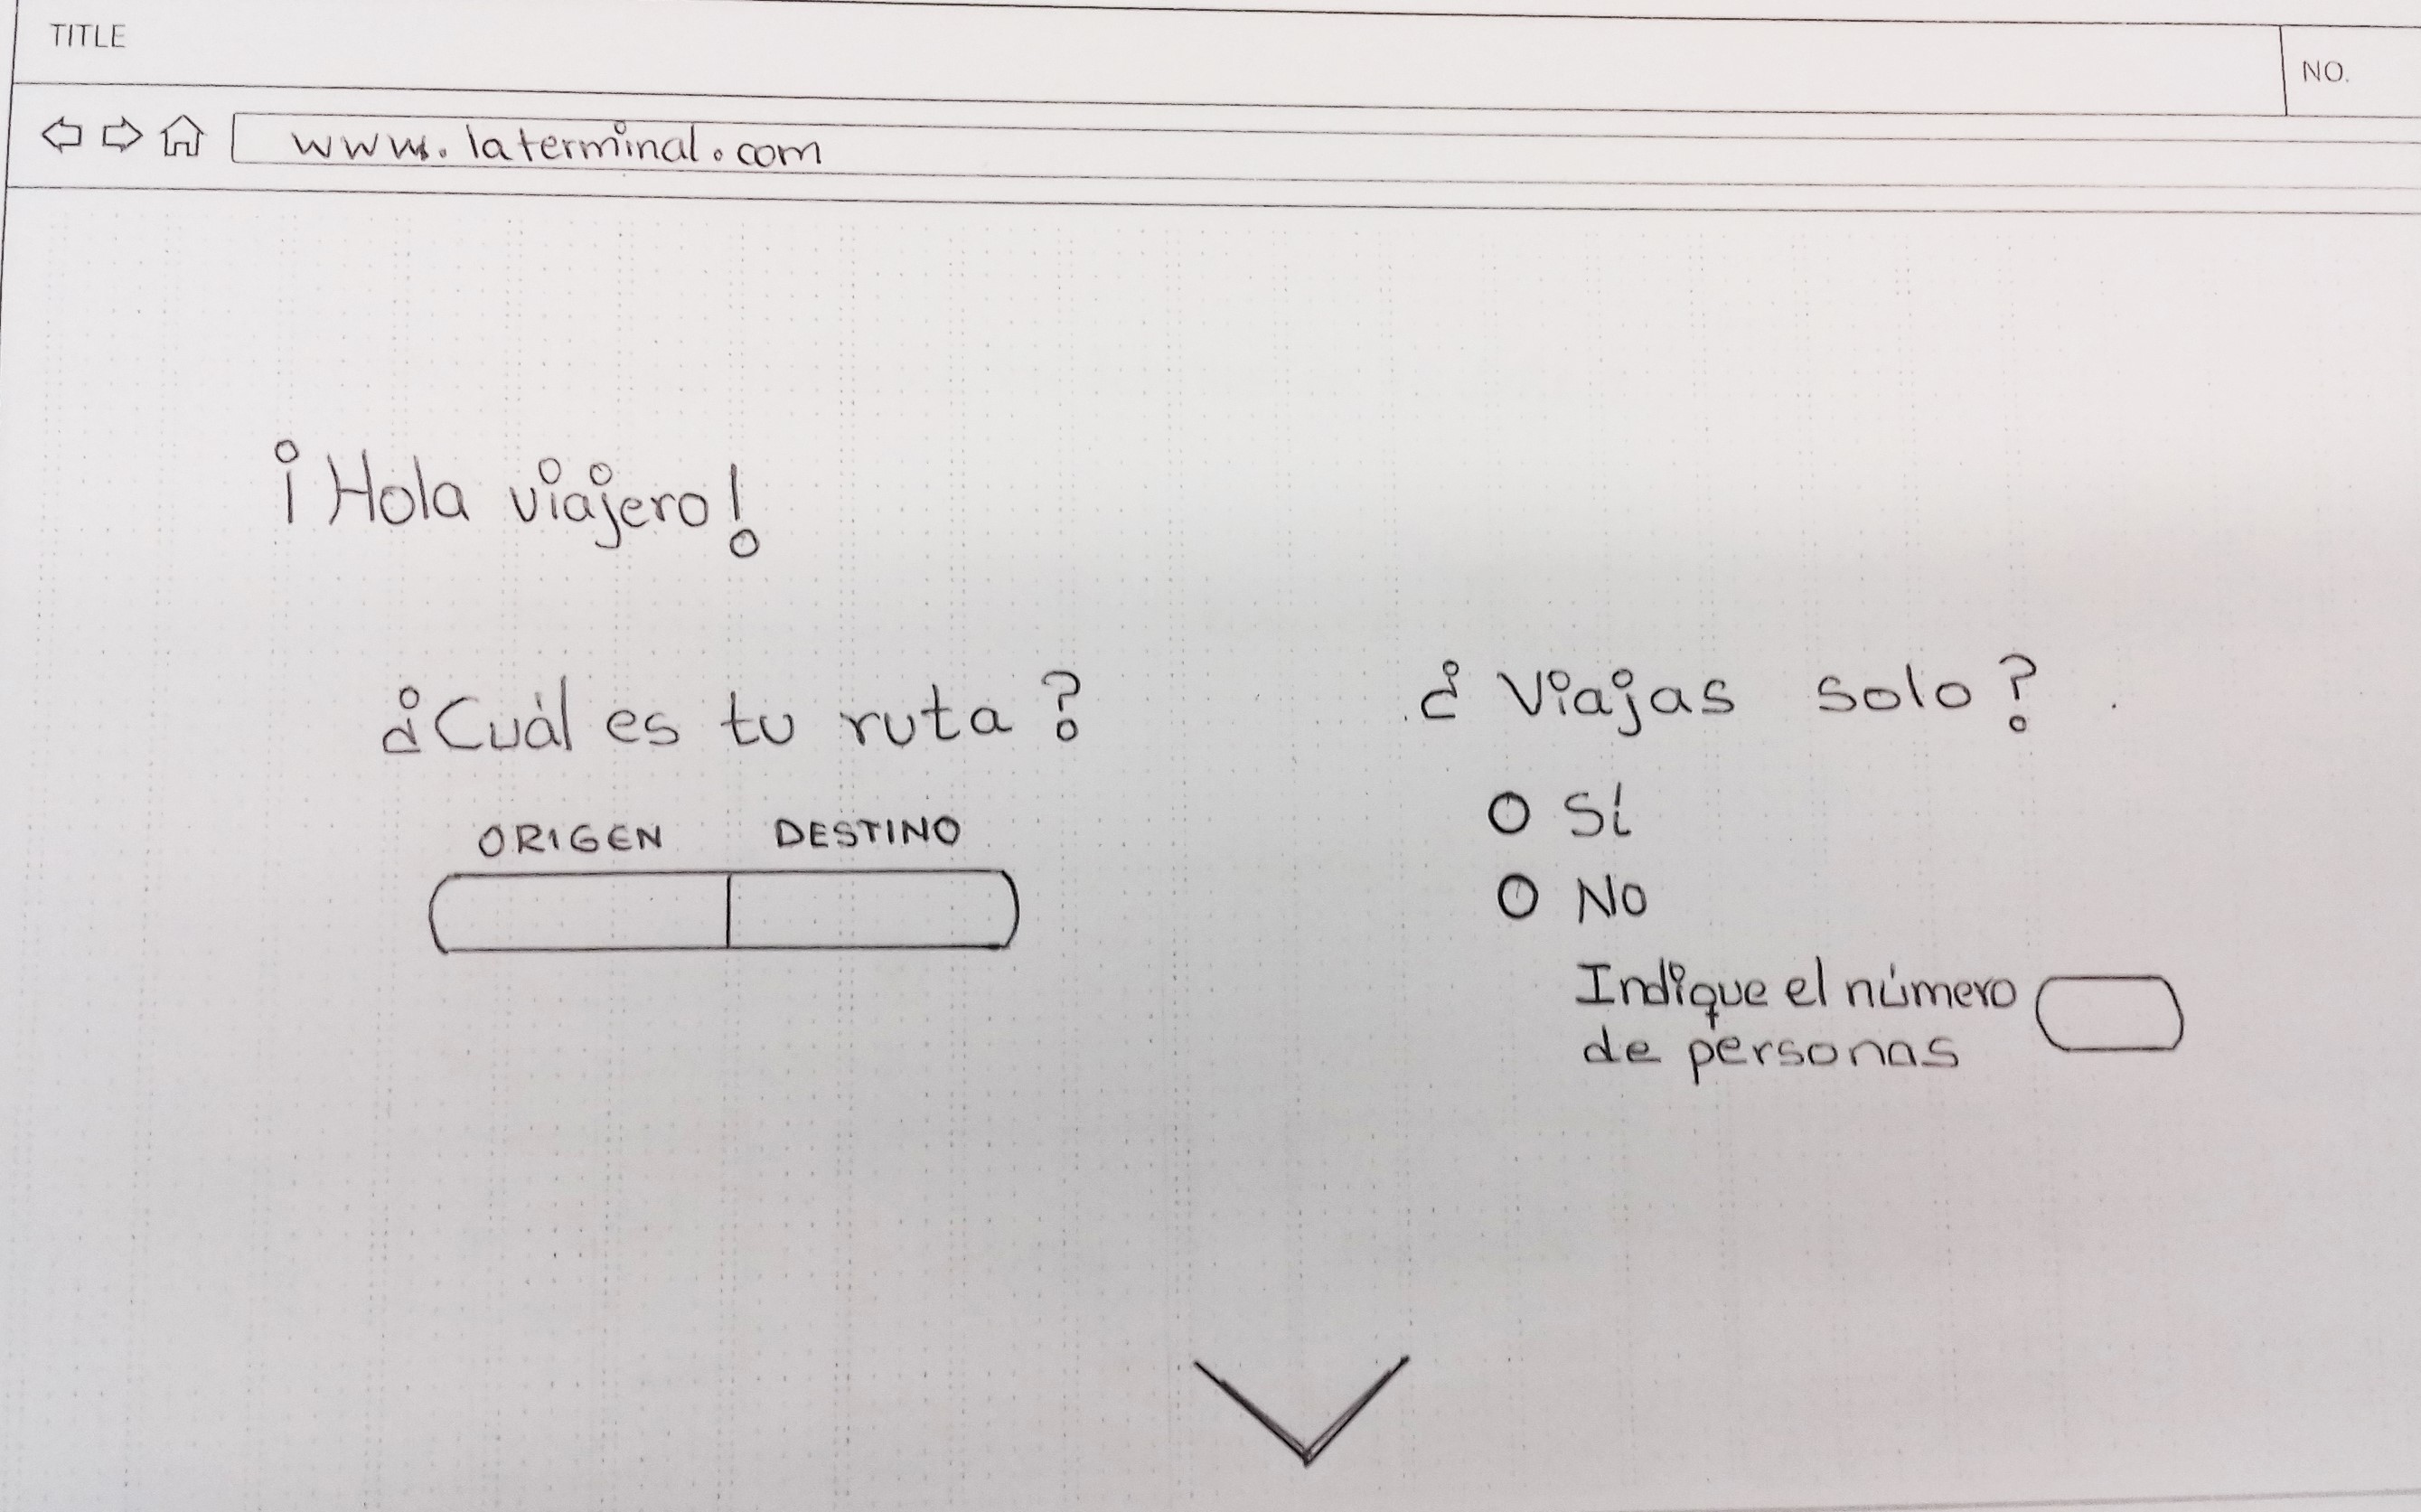 TITLE
NO.
www.laterminal.com
¡Hola viajero!
¿Cuál es tu ruta?
ORIGEN DESTINO
¿Viajas solo?
Sí
No
Indique el número
de personas